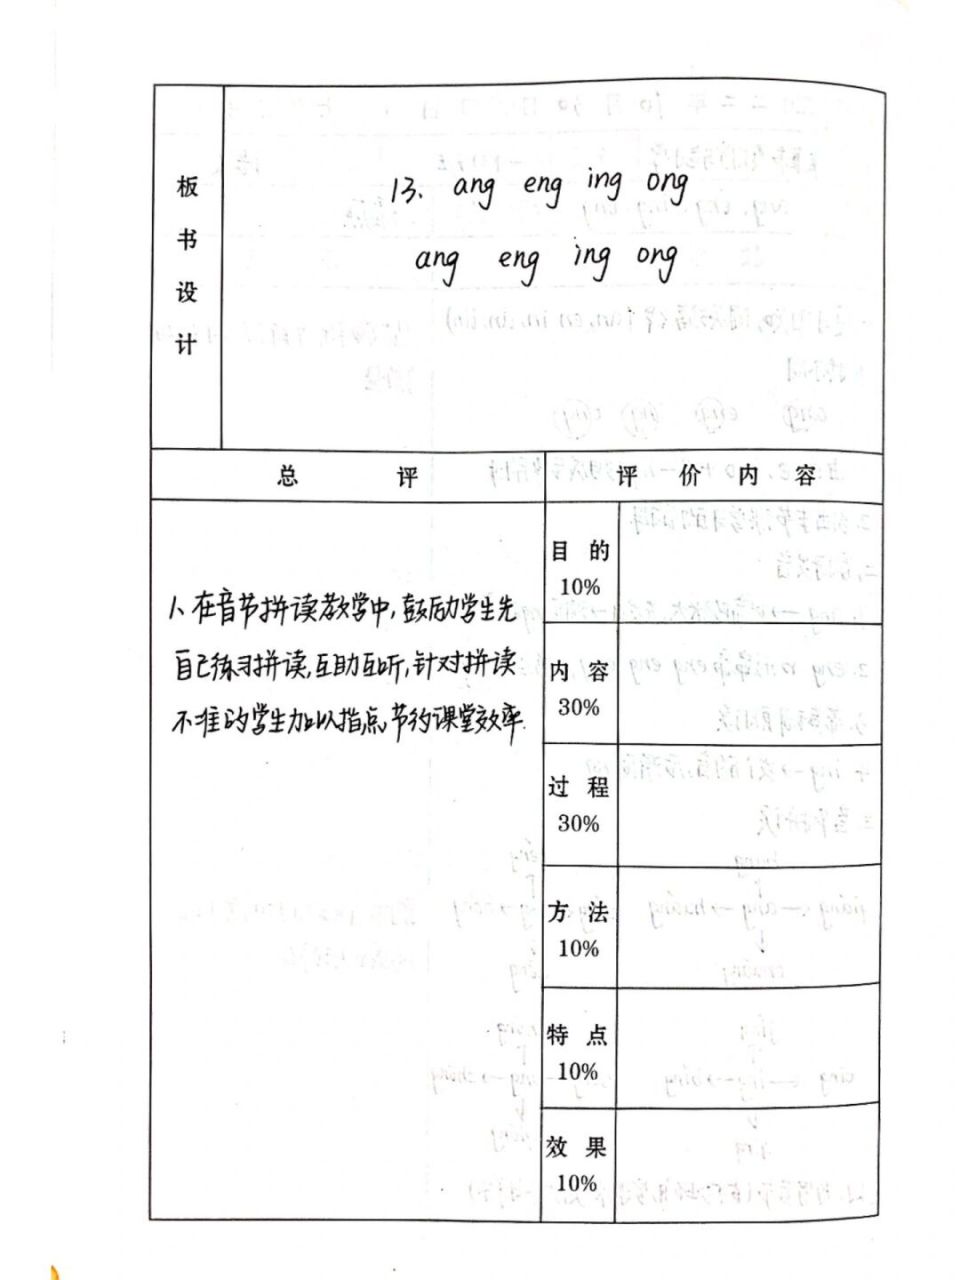 板书设计
13. ang eng ing ong
ang eng ing ong
总评
评价内容
1、在音节拼读教学中,鼓励学生先
自己练习拼读,互助互听,针对拼读
不准的学生加以指点,节约课堂效率.
目的
10%
内容
30%
过程
30%
方法
10%
特点
10%
效果
10%